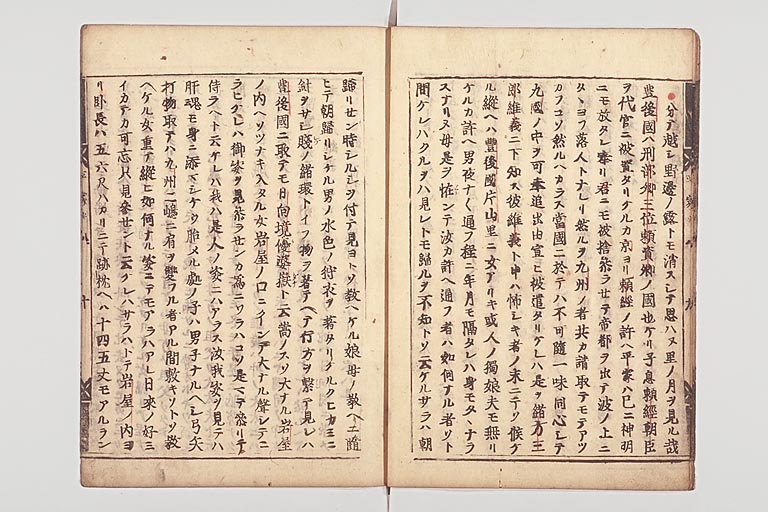 分テ越シ野邊ノ露トモ消スシテ思ハヌ里ノ月ヲ見ル哉
豊後國ハ刑部卿三位頼資卿ノ國也ケリ子息頼經朝臣
ヲ代官ニ被置タリケルカ京ヨリ頼經ノ許ヘ平家ハ已ニ神明
ニモ放タレ奉リ君ニモ被捨奈ラセテ帝都ヲ出テ波ノ上ニ
タヽヨフ落人トナレリ然ルヲ九州ノ者共カ請取テモテアツ
カフコソ然ルヘカラス當國ニ於テハ不可隨一味同心シテ
九國ノ中ヲ可奉追出由宣ヒ被遣タリケレハ是ヲ緒方三
郎維義ニ下知ス彼維義ト申ハ怖シキ者ノ末ニテソ候ケ
ル縦ヘハ豊後國片山里ニ女アリキ或人ノ獨娘夫モ無リ
ケルカ許ヘ男夜ナ〱通フ程ニ年月モ隔タレハ身モタヽナラ
スナリヌ母是ヲ恠シテ汝カ許ヘ通フ者ハ如何ナル者ソト
問ケレハクルヲハ見レトモ歸ルヲ不知トソ云ケルサラハ朝
歸リセン時シルシヲ付テ見ヨトソ教ヘケル娘母ノ教ヘニ隨
ヒテ朝歸リシケル男ノ水色ノ狩衣ヲ著タリケルクヒカミニ
針ヲサシ賤ノ緒環トイフ物ヲ著テヘテ行方ヲ繋テ見レハ
豊後國ニ取テモ日向境優婆嶽ト云嵩ノスソ大ナル岩屋
ノ内ヘソツナキ入タル女岩屋ノ口ニイシテ大ナル聲シテニ
ラヒケレハ御姿ヲ見奈ラセンカ爲ニワラハコソ是マテ參リテ
侍ラヘト云ケレハ我ハ是人ノ姿ニハアラス汝我姿ヲ見テハ
肝魂モ身ニ添マシケソ胎メル處ノ子ハ男子ナルヘシ弓矢
打物取テハ九州二嶋ニ有ヲ雙フル者アル間敷キソトソ教
ヘケル女重テ縦ヒ如何ナル姿ニテモアラハアレ日來ノ好ミ
イカテカ可忘只見參セント云ケレハサラハトテ岩屋ノ内ヨ
リ卧長ハ五六尺ハカリニテ跡枕ヘハ十四五丈モアルラン